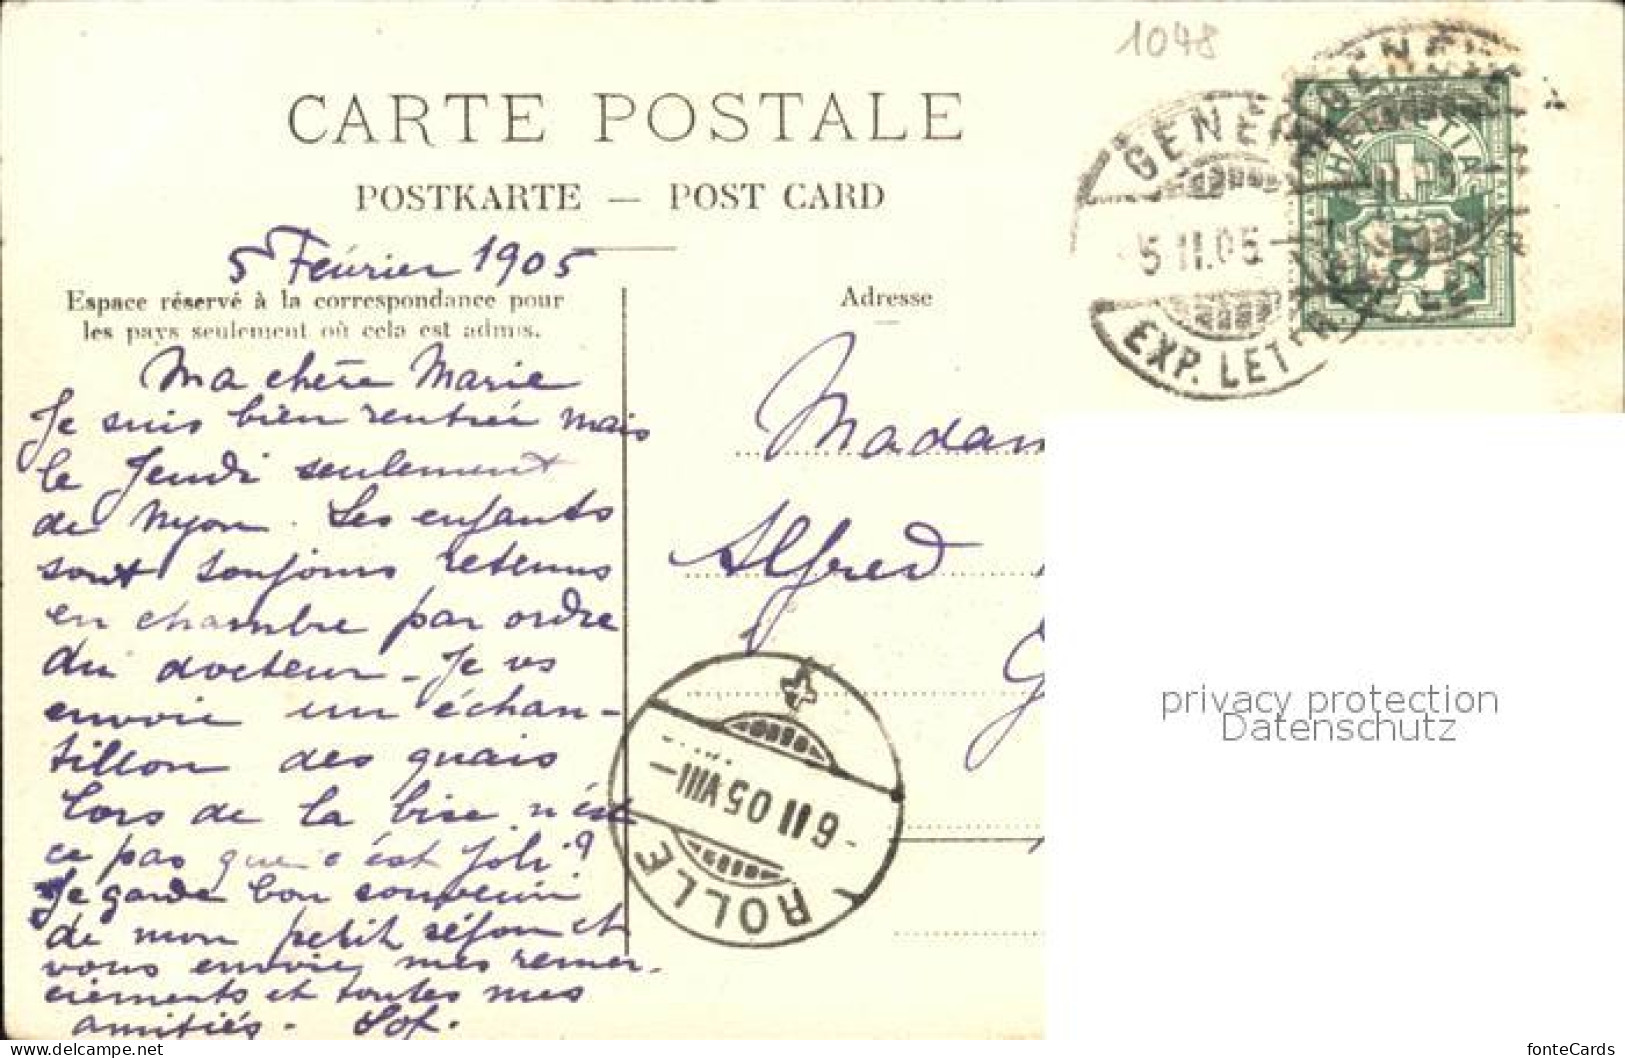 1048
CARTE POSTALE
POSTKARTE — POST CARD
5 Février 1905
Espace réservé à la correspondance pour
les pays seulement où cela est admis.
Adresse
GENEV
5.II.05-
EXP. LETTR
GENEVE
HELVETIA
5
Ma chère Marie
Je suis bien rentrée mais
le Jeudi seulement
de Nyon. Les enfants
sont toujours retenus
en chambre par ordre
du docteur - Je vs
envoie un échan-
tillon des quais
lors de la bise n'est
ce pas que c'est joli?
Je garde bon souvenir
de mon petit séjour et
vous envoie mes remer-
ciements et toutes mes
amitiés.
Madam
Alfred
G
6 II 05 VIII-
ROLLE
privacy protection
Datenschutz
www.delcampe.net
fonteCards